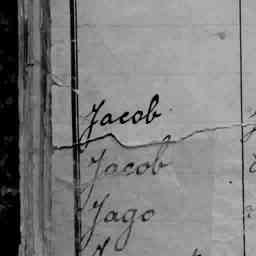 Jacob
Jacob
Jago